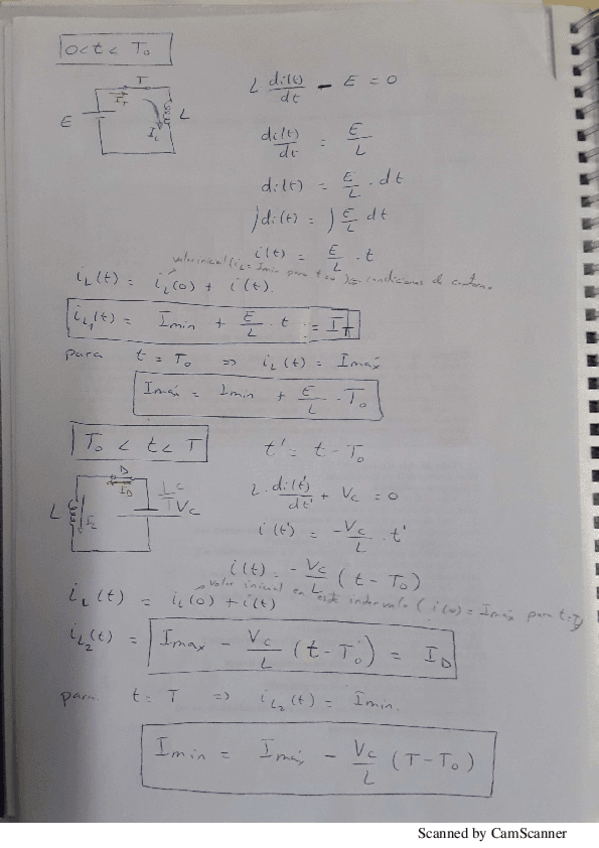 0 < t < T₀
T
I_T
E
L
I_L
L di(t)/dt - E = 0
di(t)/dt = E/L
di(t) = E/L · dt
∫di(t) = ∫E/L dt
i(t) = E/L · t
valor inicial (i_L = Imin para t=0) condiciones de contorno
i_L(t) = i_L(0) + i(t).
i_L₁(t) = Imin + E/L · t = I_T
para t = T₀ ⇒ i_L(t) = Imáx
Imáx = Imin + E/L · T₀
T₀ < t < T
t' = t - T₀
D
I_D
C
L
I_L
Vc
L · di(t')/dt' + Vc = 0
i(t') = -Vc/L · t'
i(t) = -Vc/L (t - T₀)
valor inicial en este intervalo (i(0) = Imáx para t=T₀)
i_L(t) = i_L(0) + i(t)
i_L₂(t) = Imax - Vc/L (t - T₀) = I_D
para t = T ⇒ i_L₂(t) = Imin.
Imin = Imáx - Vc/L (T - T₀)
Scanned by CamScanner